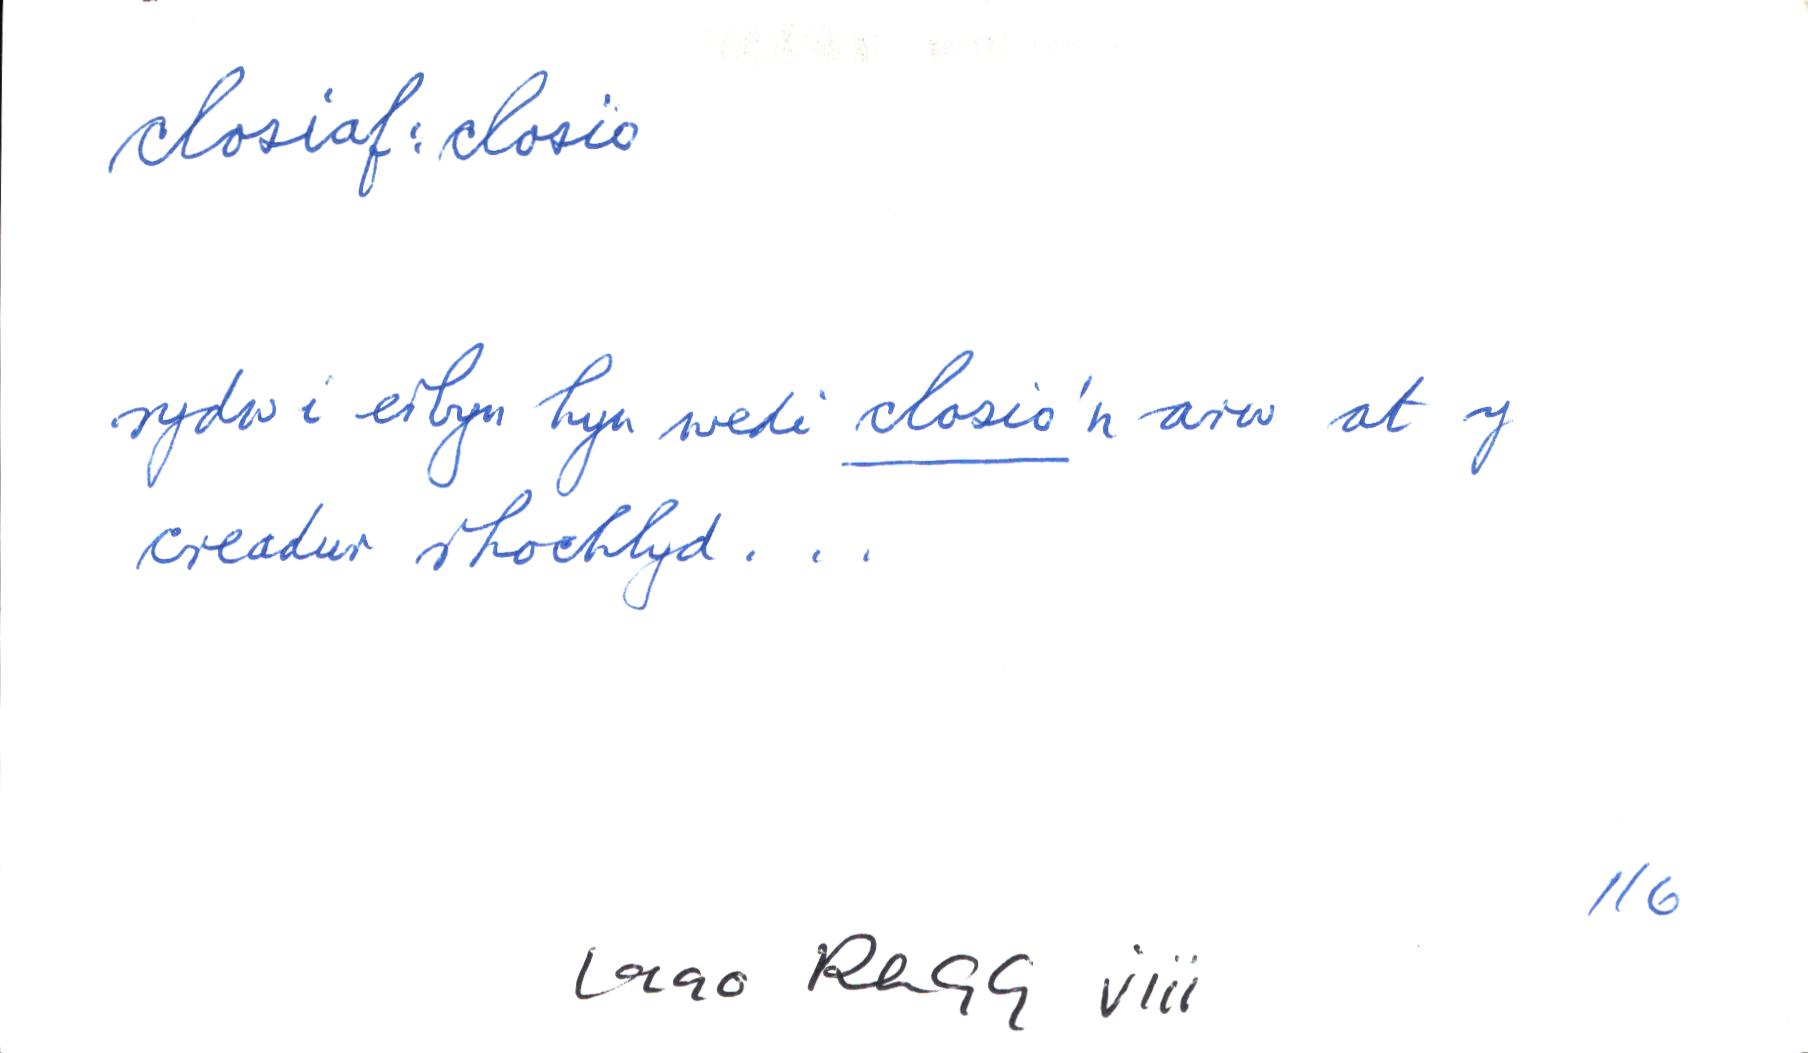 closiaf: closio
rydw i erbyn hyn wedi closio'n arw at y
creadur rhochlyd. . .
116
viii